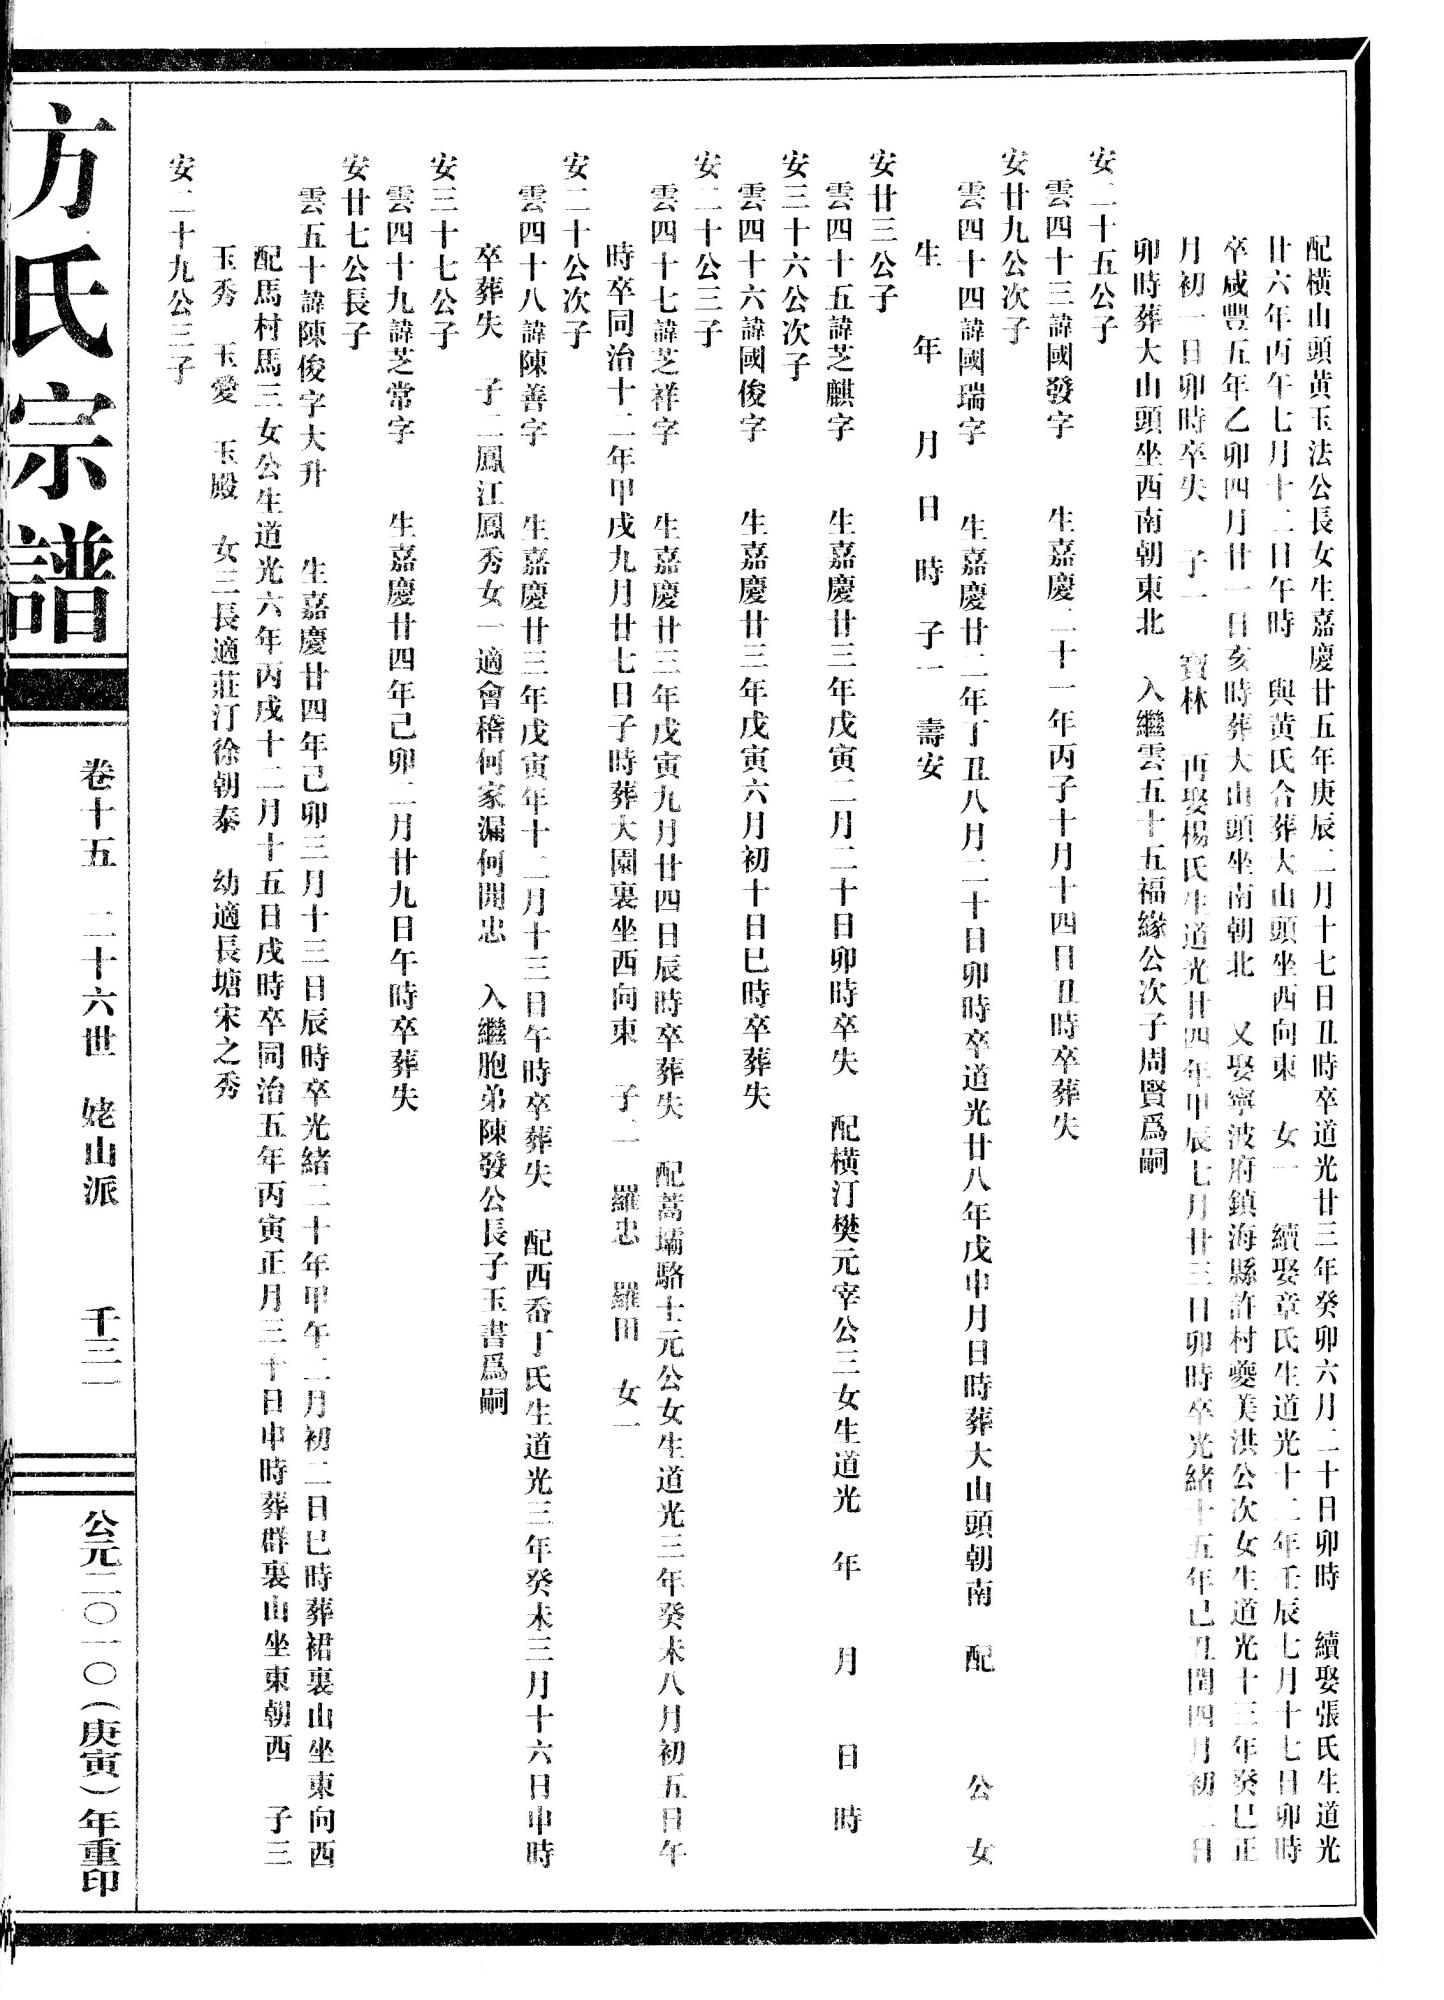 配橫山頭黃玉法公長女生嘉慶廿五年庚辰二月十七日丑時卒道光廿三年癸卯六月二十日卯時　續娶張氏生道光
廿六年丙午七月十二日午時　與黃氏合葬大山頭坐西向東　女一　續娶章氏生道光十二年壬辰七月十七日卯時
卒咸豐五年乙卯四月廿一日亥時葬大山頭坐南朝北　又娶寧波府鎮海縣許村夔美洪公次女生道光十三年癸巳正
月初一日卯時卒失　子一　寶林　再娶楊氏生道光廿四年甲辰七月廿三日卯時卒光緒十五年己丑閏四月初二日
卯時葬大山頭坐西南朝東北　入繼雲五十五福緣公次子周賢爲嗣
安二十五公子
雲四十三諱國發字　生嘉慶二十一年丙子十月十四日丑時卒葬失
安廿九公次子
雲四十四諱國瑞字　生嘉慶廿二年丁丑八月二十日卯時卒道光廿八年戊申月日時葬大山頭朝南　配　公　女
生　年　月　日　時　子一　壽安
安廿三公子
雲四十五諱芝麒字　生嘉慶廿三年戊寅二月二十日卯時卒失　配橫汀樊元宰公三女生道光　年　月　日　時
安三十六公次子
雲四十六諱國俊字　生嘉慶廿三年戊寅六月初十日巳時卒葬失
安二十公三子
雲四十七諱芝祥字　生嘉慶廿三年戊寅九月廿四日辰時卒葬失　配蒿壩駱士元公女生道光三年癸未八月初五日午
時卒同治十二年甲戌九月廿七日子時葬大園裏坐西向東　子二　羅忠　羅田　女一
安二十公次子
雲四十八諱陳善字　生嘉慶廿三年戊寅年十二月十三日午時卒葬失　配西岙丁氏生道光三年癸未三月十六日申時
卒葬失　子二鳳江鳳秀女一適會稽何家漏何開忠　入繼胞弟陳發公長子玉書爲嗣
安三十七公子
雲四十九諱芝常字　生嘉慶廿四年己卯二月廿九日午時卒葬失
安廿七公長子
雲五十諱陳俊字大升　生嘉慶廿四年己卯三月十三日辰時卒光緒二十年甲午二月初二日巳時葬裙裏山坐東向西
配馬村馬三女公生道光六年丙戌十二月十五日戌時卒同治五年丙寅正月三十日申時葬群裏山坐東朝西　子三
玉秀　玉愛　玉殿　女二長適莊汀徐朝泰　幼適長塘宋之秀
安二十九公三子
方氏宗譜
卷十五　二十六世　姥山派　千三一
公元二〇一〇（庚寅）年重印